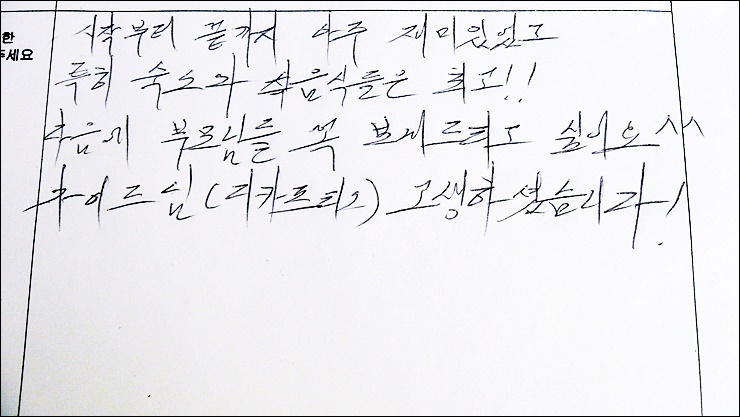 한
주세요
시작부터 끝까지 아주 재미있었고
특히 숙소와 음식들은 최고!!
다음에 부모님들 꼭 보내드리고 싶어요^^
가이드님(디카프리오) 고생하셨습니다!